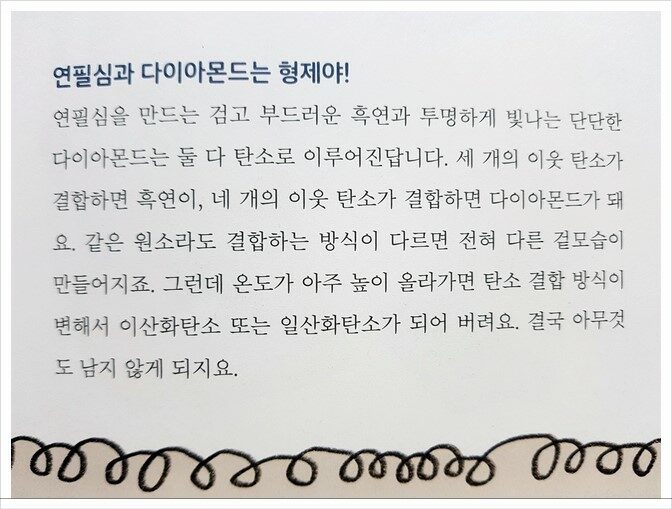 연필심과 다이아몬드는 형제야!
연필심을 만드는 검고 부드러운 흑연과 투명하게 빛나는 단단한
다이아몬드는 둘 다 탄소로 이루어진답니다. 세 개의 이웃 탄소가
결합하면 흑연이, 네 개의 이웃 탄소가 결합하면 다이아몬드가 돼
요. 같은 원소라도 결합하는 방식이 다르면 전혀 다른 겉모습이
만들어지죠. 그런데 온도가 아주 높이 올라가면 탄소 결합 방식이
변해서 이산화탄소 또는 일산화탄소가 되어 버려요. 결국 아무것
도 남지 않게 되지요.